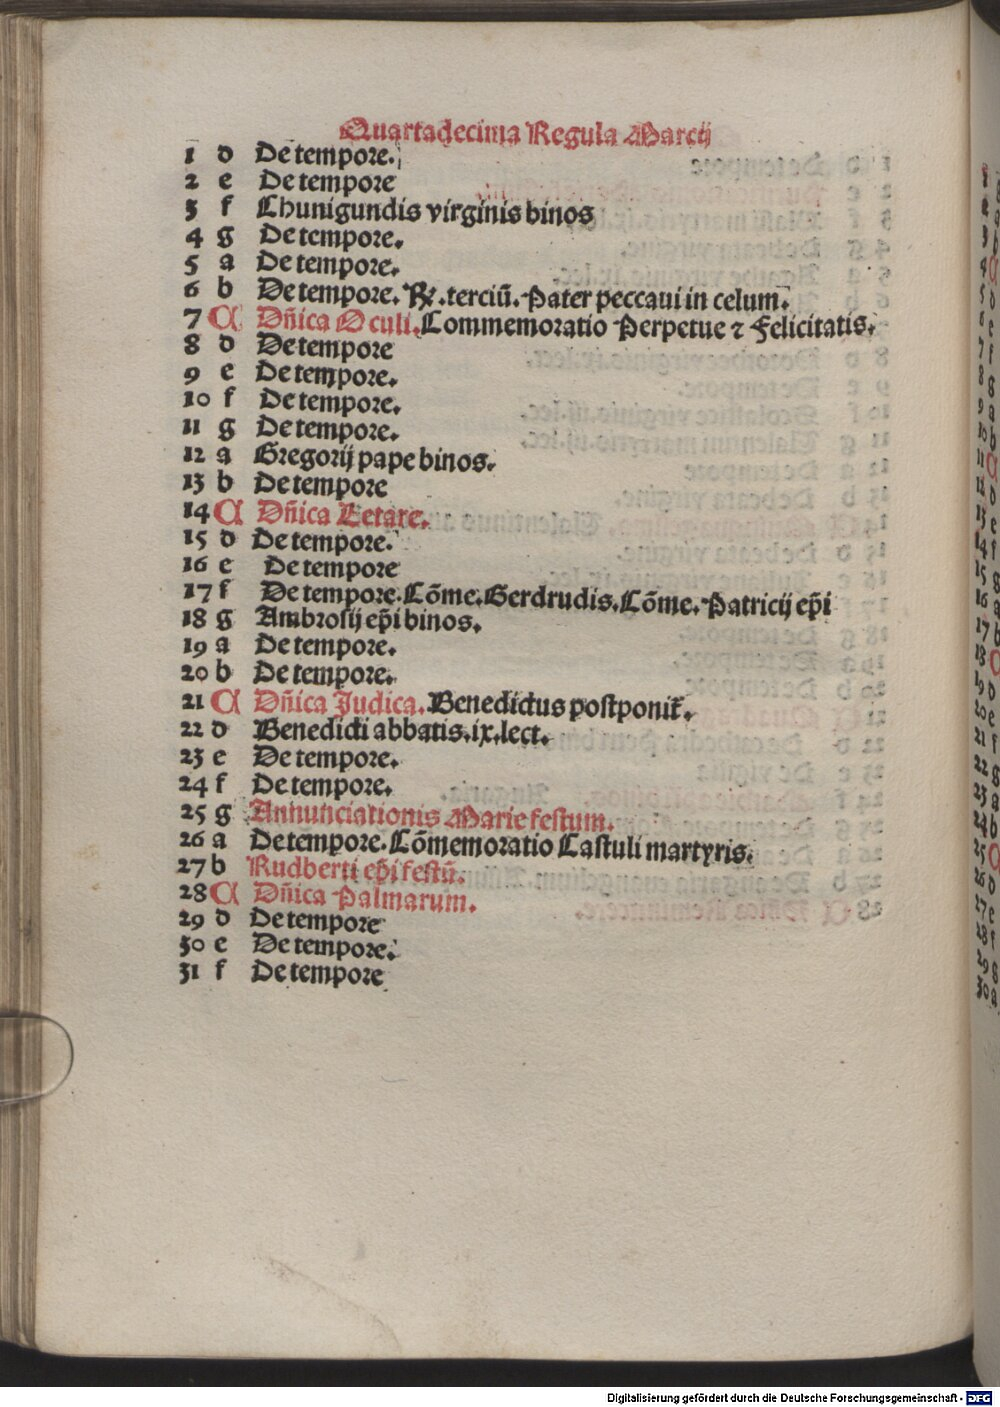 Quartadecima Regula Marcij
1 d De tempore.
2 e De tempore
3 f Chunigundis virginis binos
4 g De tempore.
5 a De tempore.
6 b De tempore. R℣. terciū. Pater peccaui in celum.
7 C Dñica Oculi. Commemoratio Perpetue ⁊ Felicitatis.
8 d De tempore
9 e De tempore.
10 f De tempore.
11 g De tempore.
12 a Gregorij pape binos.
13 b De tempore
14 C Dñica Letare.
15 d De tempore.
16 e De tempore
17 f De tempore. Cōme. Gerdrudis. Cōme. Patricij ep̄i
18 g Ambrosij ep̄i binos.
19 a De tempore.
20 b De tempore.
21 C Dñica Judica. Benedictus postponit̄.
22 d Benedicti abbatis. ix. lect.
23 e De tempore.
24 f De tempore.
25 g Annunciationis Marie festum.
26 a De tempore. Cōmemoratio Castuli martyris.
27 b Rudberti ep̄i festū.
28 C Dñica Palmarum.
29 d De tempore
30 e De tempore.
31 f De tempore
Digitalisierung gefördert durch die Deutsche Forschungsgemeinschaft - DFG